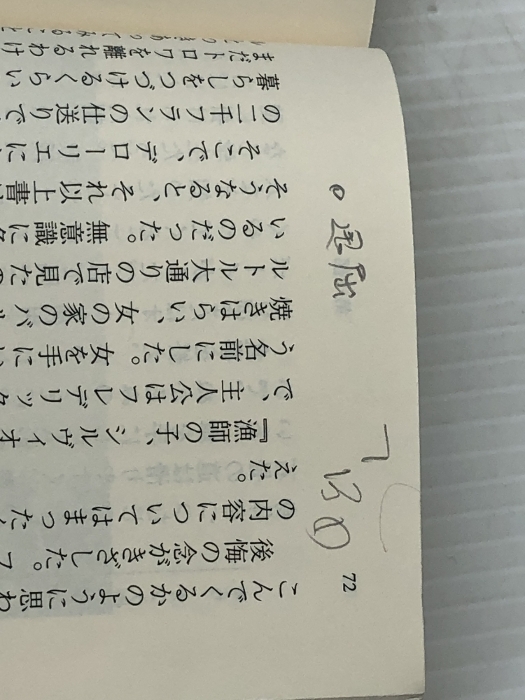 72
こんでくるかのように思わ
後悔の念がきざした。フ
の内容についてはまった
えた。
『漁師の子、シルヴィオ
で、主人公はフレデリック
う名前にした。女を手に
焼きはらい、女の家のバ
ルトル大通りの店で見たの
いるのだった。無意識に
そうなると、それ以上書
そこで、デローリエに
の二千フランの仕送りで
暮らしをつづけるくらい
まだトロワを離れるわけ